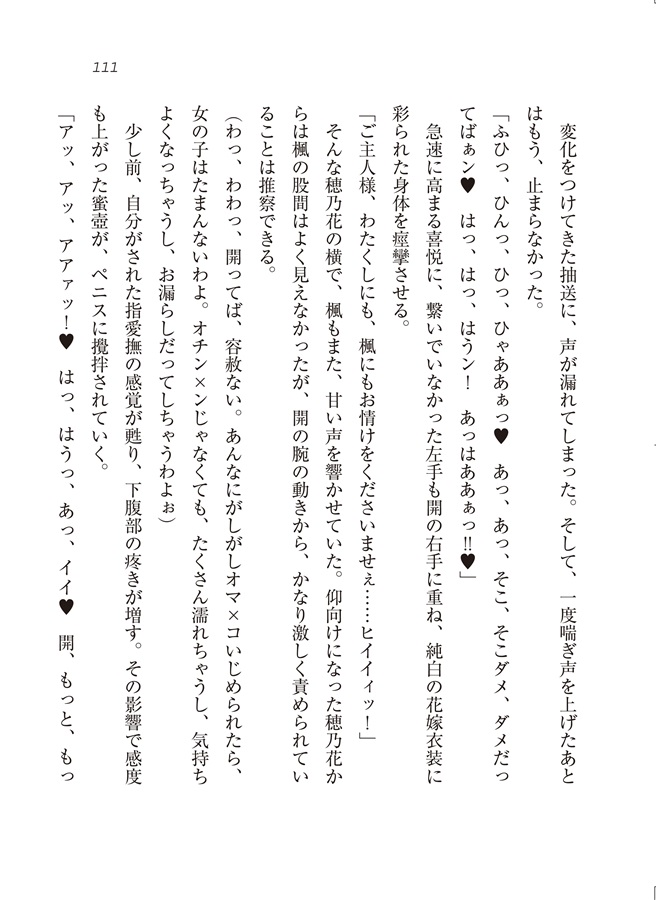 111
　変化をつけてきた抽送に、声が漏れてしまった。そして、一度喘ぎ声を上げたあと
はもう、止まらなかった。
「ふひっ、ひんっ、ひっ、ひゃああぁっ♥　あっ、あっ、そこ、そこダメ、ダメだっ
てばぁン♥　はっ、はっ、はうン！　あっはああぁっ‼♥」
　急速に高まる喜悦に、繋いでいなかった左手も開の右手に重ね、純白の花嫁衣装に
彩られた身体を痙攣させる。
「ご主人様、わたくしにも、楓にもお情けをくださいませぇ……ヒイイィッ！」
　そんな穂乃花の横で、楓もまた、甘い声を響かせていた。仰向けになった穂乃花か
らは楓の股間はよく見えなかったが、開の腕の動きから、かなり激しく責められてい
ることは推察できる。
（わっ、わわっ、開ってば、容赦ない。あんなにがしがしオマ×コいじめられたら、
女の子はたまんないわよ。オチン×ンじゃなくても、たくさん濡れちゃうし、気持ち
よくなっちゃうし、お漏らしだってしちゃうわよぉ）
　少し前、自分がされた指愛撫の感覚が甦り、下腹部の疼きが増す。その影響で感度
も上がった蜜壺が、ペニスに攪拌されていく。
「アッ、アッ、アアァッ！♥　はっ、はうっ、あっ、イイ♥　開、もっと、もっ